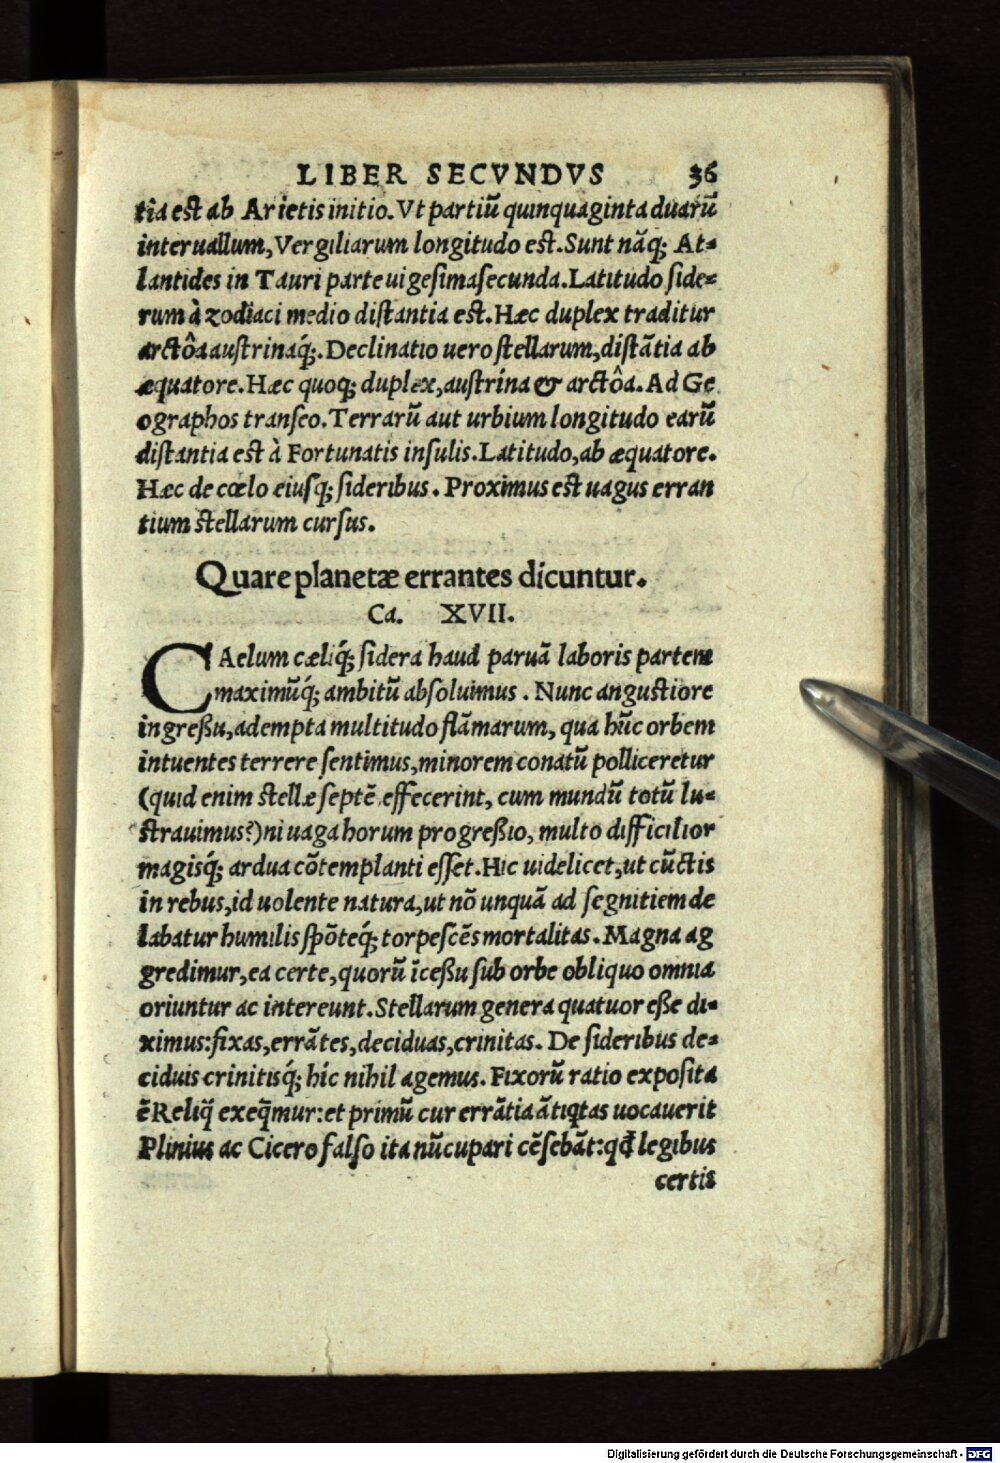 LIBER SECVNDVS 36
tia est ab Arietis initio. Vt partiũ quinquaginta duarũ
interuallum, Vergiliarum longitudo est. Sunt nãq; At-
lantides in Tauri parte uigesimasecunda. Latitudo side-
rum à zodiaci medio distantia est. Hæc duplex traditur
arctôa austrinaq́;. Declinatio uero stellarum, distãtia ab
æquatore. Hæc quoq; duplex, austrína & arctôa. Ad Ge
ographos transeo. Terrarũ aut urbium longitudo earũ
distantia est à Fortunatis insulis. Latitudo, ab æquatore.
Hæc de cœlo eiusq; sideribus. Proximus est uagus erran
tium stellarum cursus.
Quare planetæ errantes dicuntur.
Ca. XVII.
CAelum cæliq́; sidera haud paruã laboris partem
maximũq́; ambitũ absoluimus. Nunc angustiore
ingreßu, adempta multitudo flãmarum, qua hũc orbem
intuentes terrere sentimus, minorem conatũ polliceretur
(quid enim stellæ septẽ effecerint, cum mundũ totũ lu-
strauimus?) ni uaga horum progreßio, multo difficilior
magisq́; ardua cõtemplanti esset. Hic uidelicet, ut cũctis
in rebus, id uolente natura, ut nõ unquã ad segnitiem de
labatur humilis spõteq́; torpescẽs mortalitas. Magna ag
gredimur, ea certe, quorũ ĩceßu sub orbe obliquo omnia
oriuntur ac intereunt. Stellarum genera quatuor eße di-
ximus: fixas, errãtes, deciduas, crinitas. De sideribus de-
ciduis crinitisq́; híc nihil agemus. Fixorũ ratio exposita
ẽ Reliq̃ exeq̃mur: et primũ cur errãtia ãtiqtas uocauerit
Plinius ac Cicero falso ita nũcupari cẽsebãt: qđ legibus
certis
Digitalisierung gefördert durch die Deutsche Forschungsgemeinschaft - DFG